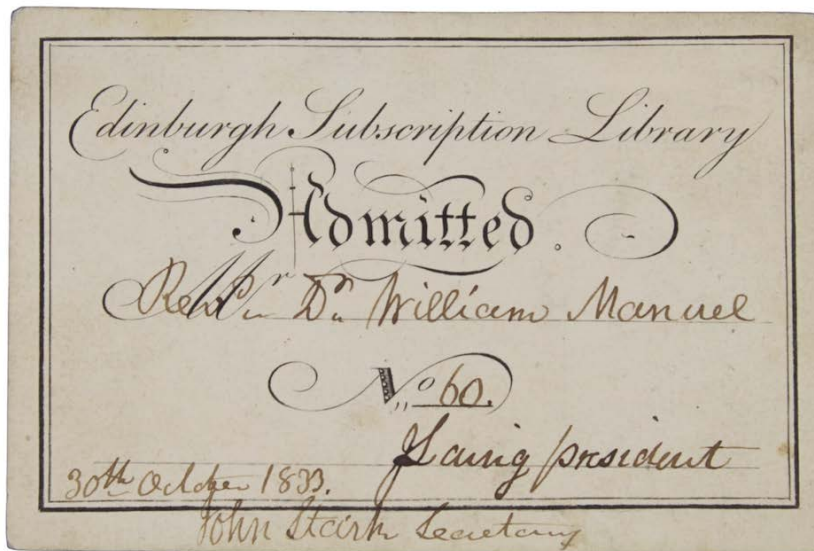 Edinburgh Subscription Library
Admitted.
Revd. Dr. William Manuel
No 60.
Laing president
30th October 1833.
John Stark Secretary